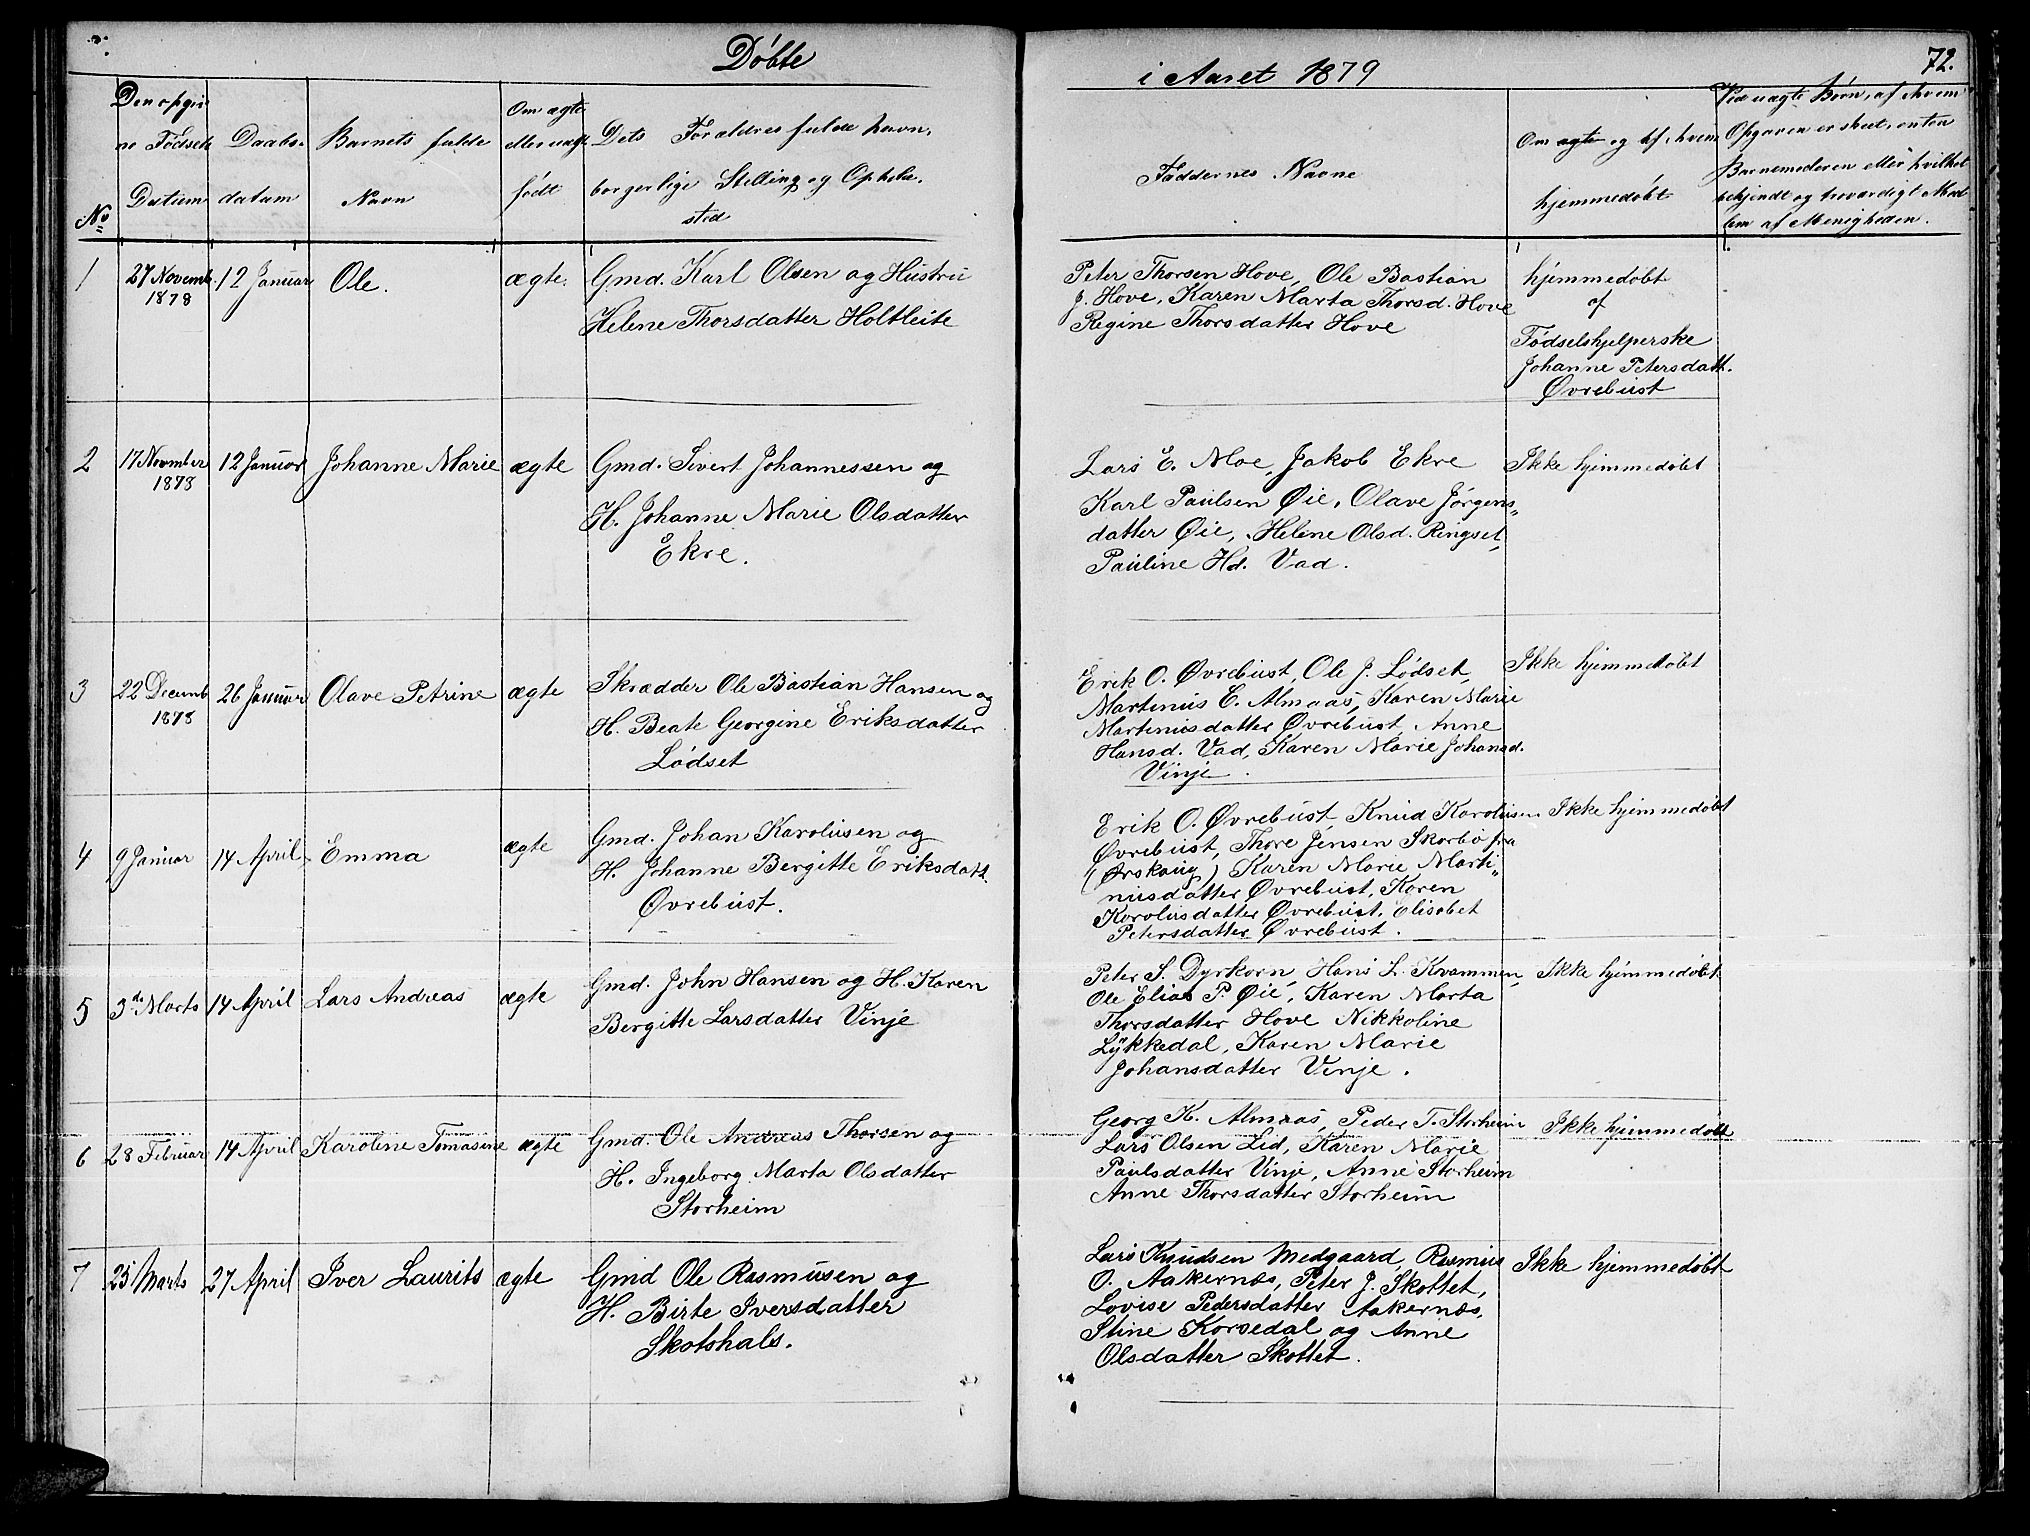 Døbte
i Aaret 1879
72.
No
Den opgiv
ne Fødsels
Datum
Daabs-
datum
Barnets fulde
Navn
Om ægte
eller uægte
født
Dets Forældres fulde Navn,
borgerlige Stilling og Opholds-
sted
Faddernes Navne
Om ægte og af hvem
hjemmedøbt
Ved uægte Børn, af hvem
Opgaven er skeet, enten
Barnemoderen eller hvilket
bekjendt og troværdigt Med
lem af Menigheden.
1
27 Novemb
1878
12 Januar
Ole.
ægte.
Gmd. Karl Olsen og Hustru
Helene Thorsdatter Holtleite
Peter Thorsen Hove, Ole Bastian
J. Hove, Karen Marta Thorsd. Hove
Regine Thorsdatter Hove
hjemmedøbt
af
Fødselshjelperske
Johanne Petersdatt.
Øvrebust
2
17 November
1878
12 Januar
Johanne Marie
ægte
Gmd. Sivert Johannessen og
H. Johanne Marie Olsdatter
Ekre.
Lars E. Moe, Jakob Ekre
Karl Paulsen Øie, Olave Jørgens„
datter Øie, Helene Olsd. Ringset,
Pauline Hd. Vad.
Ikke hjemmedøbt
3
22 Decemb
1878
26 Januar
Olave Petrine
ægte
Skrædder Ole Bastian Hansen og
H. Beate Georgine Eriksdatter
Lødset
Erik O. Øvrebust, Ole J. Lødset,
Martinus E. Almaas, Karen Marie
Martinusdatter Øvrebust, Anne
Hansd. Vad, Karen Marie Johansd.
Vinje.
Ikke hjemmedøbt
4
9 Januar
14 April
Emma
ægte
Gmd. Johan Karolusen og
H. Johanne Bergitte Eriksdatt.
Øvrebust.
Erik O. Øvrebust, Knud Karolusen
Øvrebust, Thore Jensen Skorbø fra
(Ørskoug) Karen Marie Marti„
nusdatter Øvrebust, Karen
Karolusdatter Øvrebust, Elisabet
Petersdatter Øvrebust.
Ikke hjemmedøbt
5
3de Marts
14 April
Lars Andreas
ægte
Gmd. John Hansen og H. Karen
Bergitte Larsdatter Vinje
Peter S. Dyrkorn, Hans L. Kvammen,
Ole Elias P. Øie, Karen Marta
Thorsdatter Hove Nikkoline
Lykkedal, Karen Marie
Johansdatter Vinje.
Ikke hjemmedøbt
6
28 Februar
14 April
Karoline Tomasine
ægte
Gmd. Ole Andreas Thorsen og
H. Ingeborg Marta Olsdatter
Storheim
Georg K. Almaas, Peder T. Storheim
Lars Olsen Lid, Karen Marie
Paulsdatter Vinje, Anne Storheim
Anne Thorsdatter Storheim
Ikke hjemmedøbt
7
25 Marts
27 April
Iver Laurits
ægte
Gmd Ole Rasmusen og
H. Birte Iversdatter
Skotshals.
Lars Knudsen Medgaard, Rasmus
O. Aakernæs, Peter J. Skottet,
Lovise Pedersdatter Aakernæs,
Stine Korsedal og Anne
Olsdatter Skottet.
Ikke hjemmedøbt